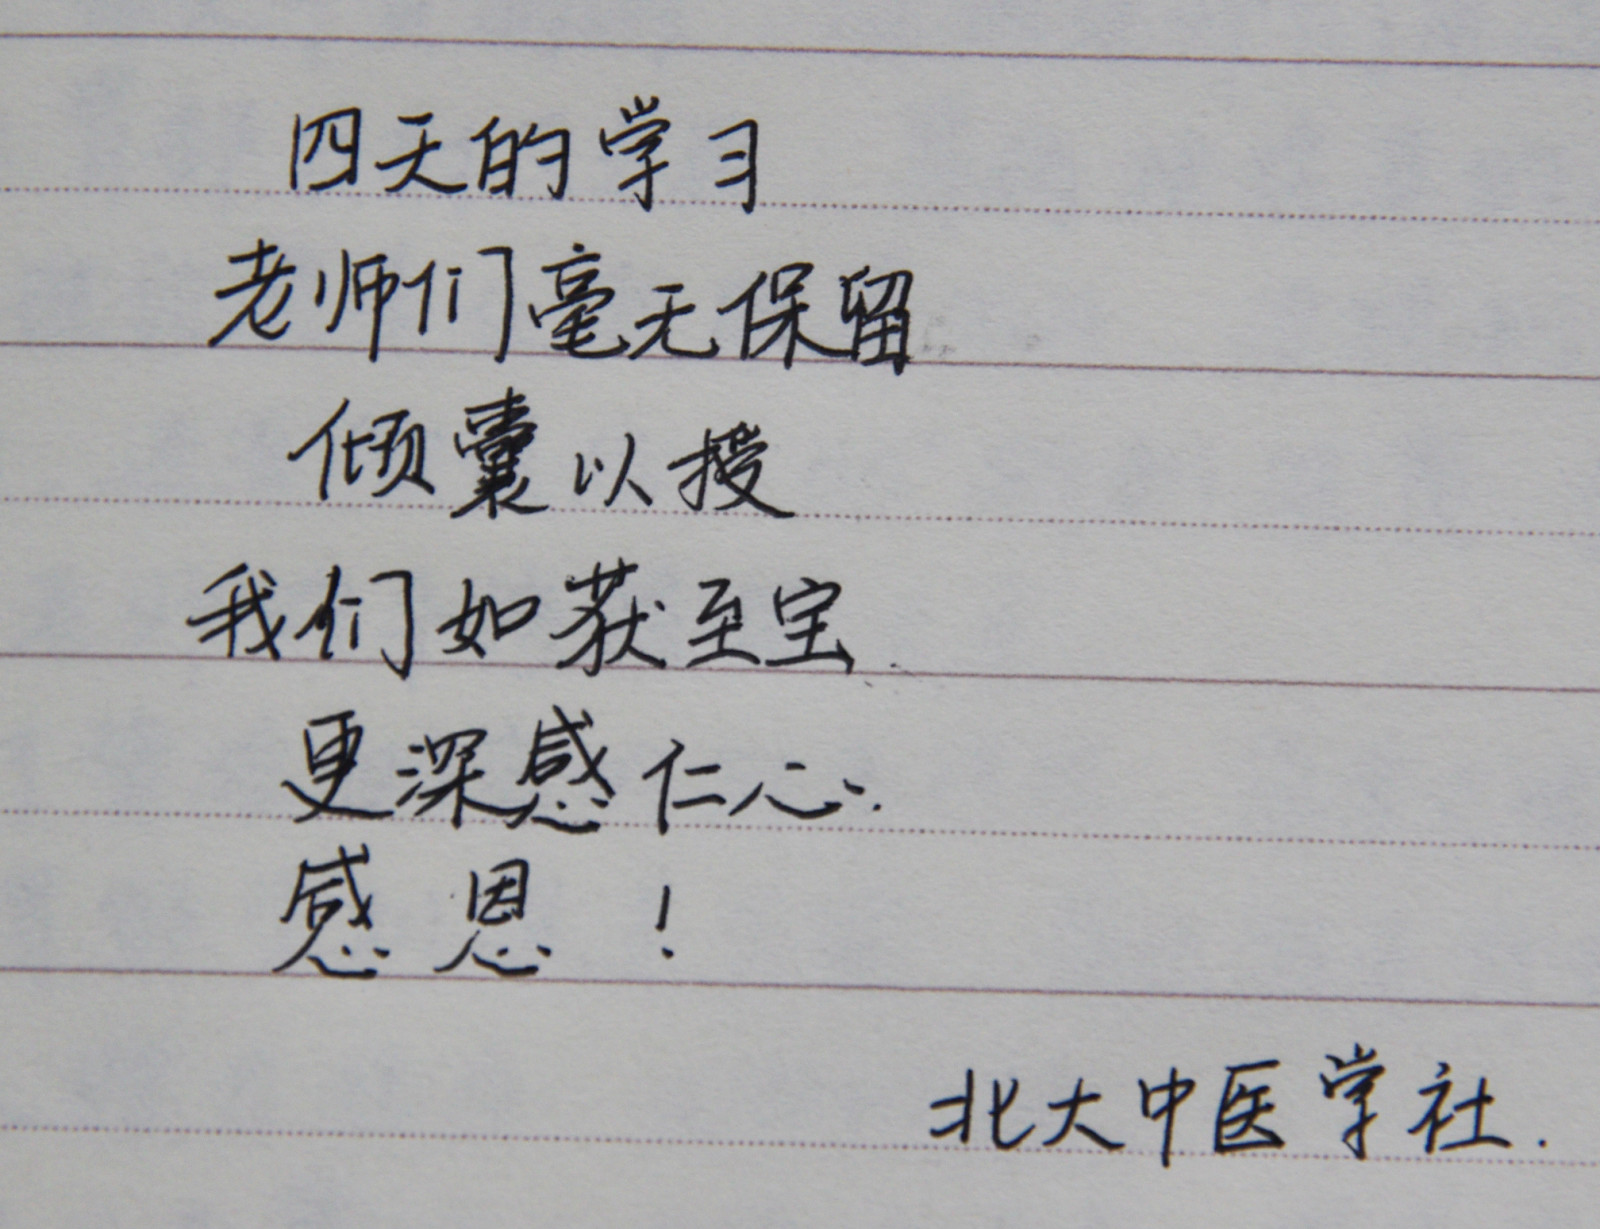 四天的学习
老师们毫无保留
倾囊以授
我们如获至宝
更深感仁心.
感恩！
北大中医学社.